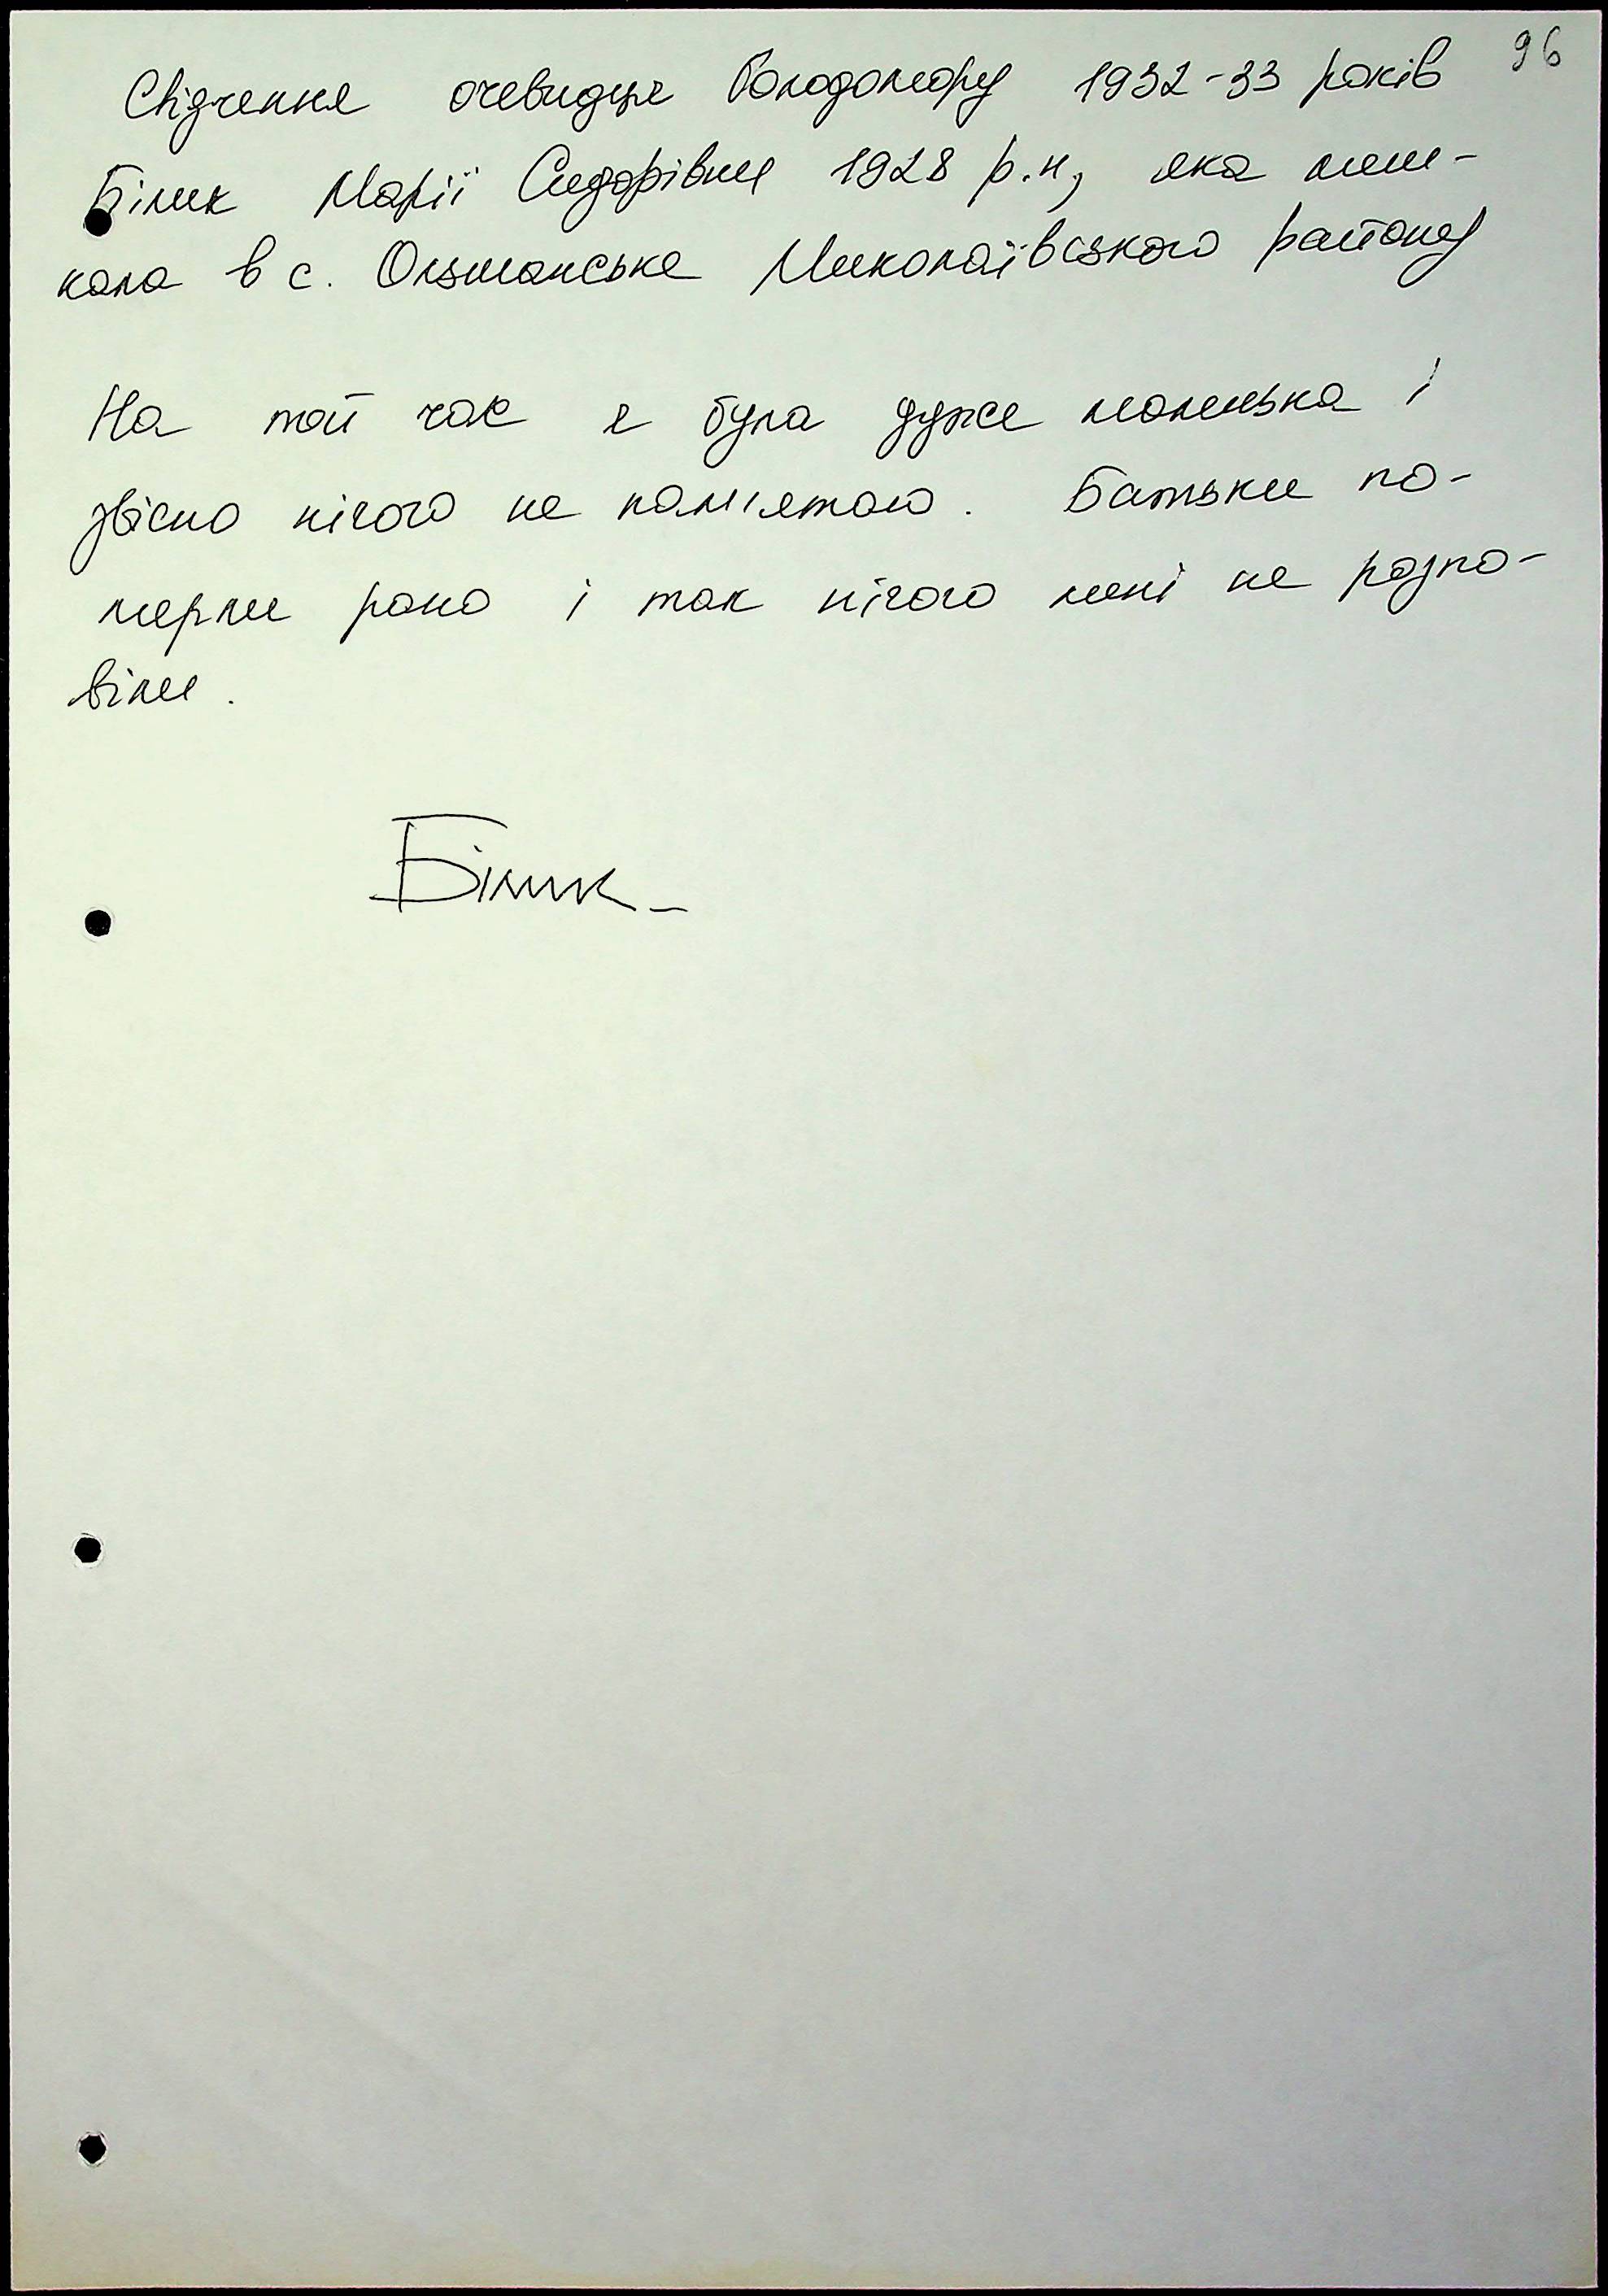 96
Свідчення очевидця Голодомору 1932-33 років
Білик Марії Сидорівни 1928 р.н, яка меш-
кала в с. Ольшанське Миколаївського району
На той час я була дуже маленька і
звісно нічого не пам'ятаю. Батьки по-
мерли рано і так нічого мені не розпо-
віли.
Білик